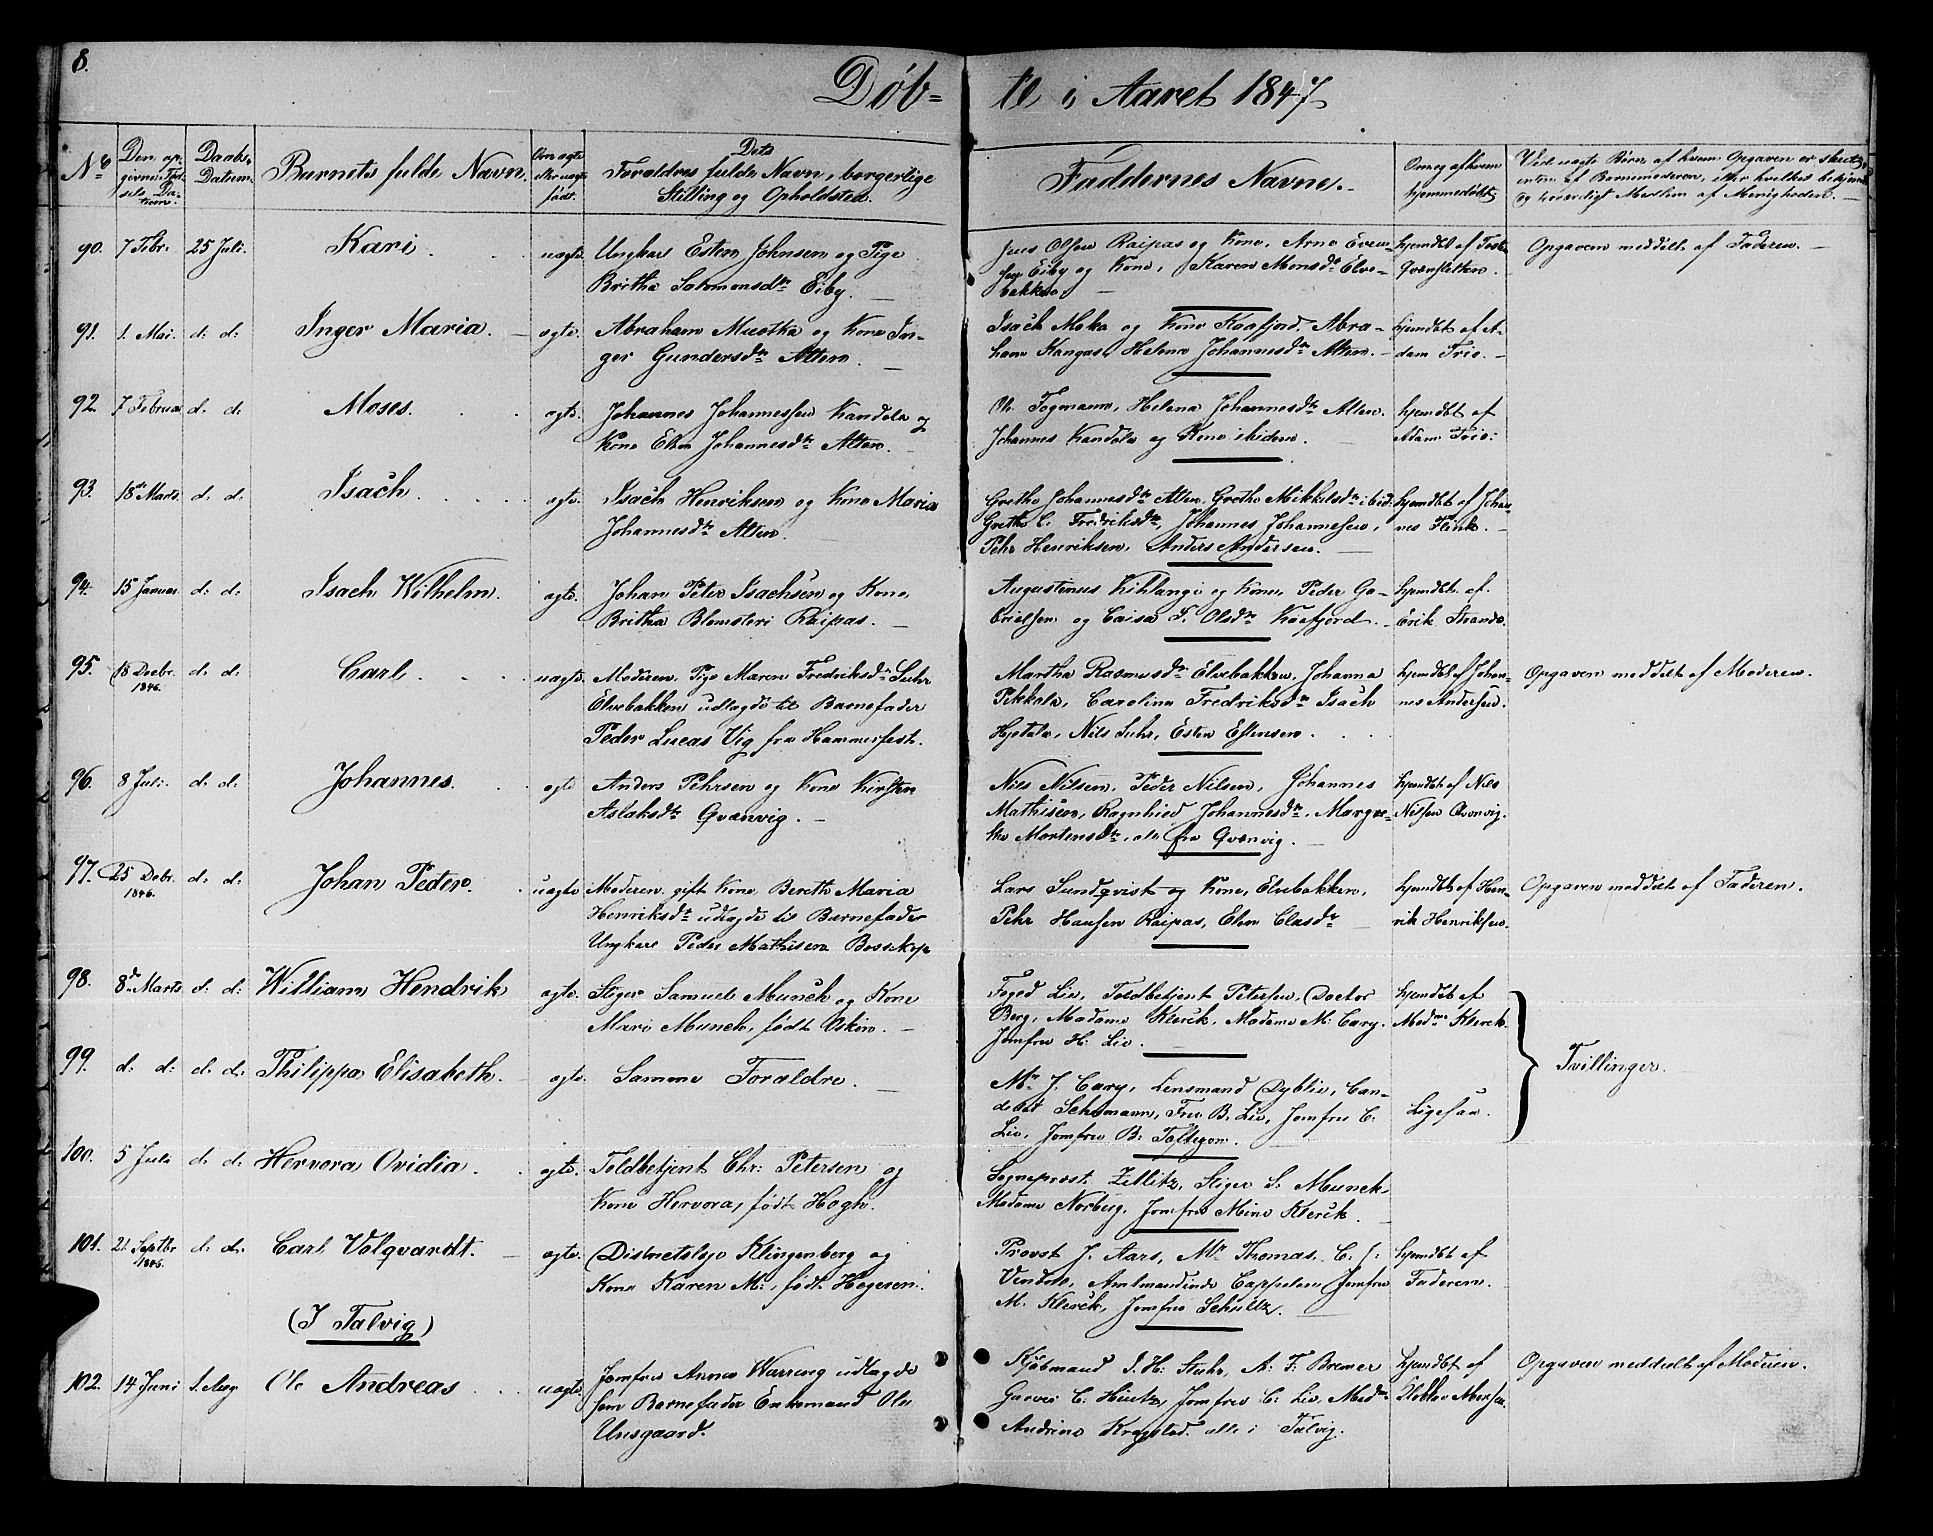 8.
Döb= te i Aaret 1847
No Den opgivne Fødsels Datum. Daabs Datum. Barnets fulde Navn. Om ægte eller uægte født. Dets Forældres fulde Navn, borgerlige Stilling og Opholdsted. Faddernes Navne. Om og af hvem hjemmedøbt Ved uægte Børn af hvem Opgaven er skeet, enten af Barnemoderen, eller hvilket bekjendt og troværdigt Medlem af Menigheden.
90. 7 Febr. 25 Juli. Kari. uægte. Ungkarl Esten Johnsen og Pige
Britha Salomonsdtr Eiby.
Jens Olsen Raipas og Kone, Arne Even-
sen Eiby og Kone, Karen Monsdtr Elve-
bakken.
hjemdbt af
Opgaven meddelt af Faderen.
91. 1. Mai. d: d: Inger Maria. ægte. Abraham Muotka og Kone In-
ger Gundersdtr Alten.
Isach Moka og Kone Kaafjord, Abra-
ham Kangas, Helena Johannesdtr Alten.
hjemdbt af A-
dam Frie.
92. 7 Februar d: d: Moses. ægte. Johannes Johannessen Kandola og
Kone Elsa Johannesdtr Alten.
Ol. Fogmann, Helena Johannesdtr Alten.
Johannes Kandola og Kone ibidem.
hjemdbt af
Adam Frie.
93. 18de Marts. d: d: Isach. ægte. Isach Henriksen og Kone Maria
Johannesdtr Alten.
Grethe Johannesdtr Alten, Grethe Mikkelsdtr ibid.
Grethe C. Fredriksdtr, Johannes Johannesen,
Pehr Henriksen, Anders Andersen.
hjemdbt af Johan-
nes Flink.
94. 15 Januar. d: d: Isach Wilhelm. ægte. Johan Peter Isachsen og Kone
Britha Blomsteri Raipas.
Augustinus Kihlangi og Kone, Peder Ga-
brielsen og Caisa S. Olsdtr Kaafjord.
hjemdbt af
Erik Strand.
95. 18 Decbr. 1846. d: d: Carl. uægte. Moderen, Pige Maren Fredriksdtr Suhr
Elvebakken udlagde til Barnefader
Peder Lucas Vig fra Hammerfest.
Martha Rasmusdtr Elvebakken, Johanna
Pekkala, Carolina Fredriksdtr Isach
Hjetala, Nils Suhr, Esten Estensen.
hjemdbt af Johan-
nes Andersen.
Opgaven meddelt af Moderen.
96. 8 Juli. d: d: Johannes. ægte Anders Pehrsen og Kone Kirsten
Aslaksdtr Qvænvig.
Nils Nilsen, Peder Nilsen, Johannes
Mathisen, Ragnhild Johannesdtr, Margre-
the Mortensdtr, alle fra Qvænvig.
hjemdbt af Nils
Nilsen Qvænvig.
97. 25 Decbr. 1846. d: d: Johan Peder. uægte Moderen, gift Kone Berethe Maria
Henriksdtr udlagde til Barnefader
Ungkarl Peder Mathisen Bossekop
Lars Sundqvist og Kone, Elvebakken,
Pehr Hansen Raipas, Elen Clasdtr
hjemdbt af Hen-
rik Henriksen.
Opgaven meddelt af Faderen.
98. 8de Marts d: d: William Hendrik ægte. Stiger Samuel Munck og Kone
Mari Munck, født Askin.
Foged Lie, Toldbetjent Petersen, Doctor
Berg, Madame Klerck, Madame M: Cary.
Jomfru H: Lie.
hjemdbt af
Madme Klerck.
99. d: d: d: d: Philippa Elisabeth. ægte. Samme Forældre.
Mr J. Cary, Lensmand Dyblie, Can-
didat Schumann, Fru B. Lie, Jomfru C.
Lie, Jomfru B: Toftegom.
Ligesaa.
Tvillinger.
100. 5 Juli d: d: Hervora Ovidia. ægte. Toldbetjent Chr: Petersen og
Kone Hervora, født Høgh.
Sognepræst Zetlitz, Stiger S. Munck.
Madame Norberg, Jomfru Mine Klerck.
101. 21 Septbr. 1846. d: d: Carl Volqvardt. ægte. Districtslæge Klingenberg og
Kone Karen M:, født Hegeren.
Provst J. Aars, Mr Thomas, C. J:
Amtmandinde Cappelen, Jomfru
M. Klerck, Jomfru Schultz.
hjemdbt af
Faderen.
(I Talvig)
102. 14 Juni 1. Aug Ole Andreas. uægte. Jomfru Anne Warreng udlagde
som Barnefader Enkemand Ole
Unsgaard.
Kjøbmand J. H: Stuhr, A: F: Bremer
Garver C. Hintz, Jomfru C: Lie, Madme
Andrine Krogstad. alle i Talvig.
hjemdbt af
Opgaven meddelt af Moderen.